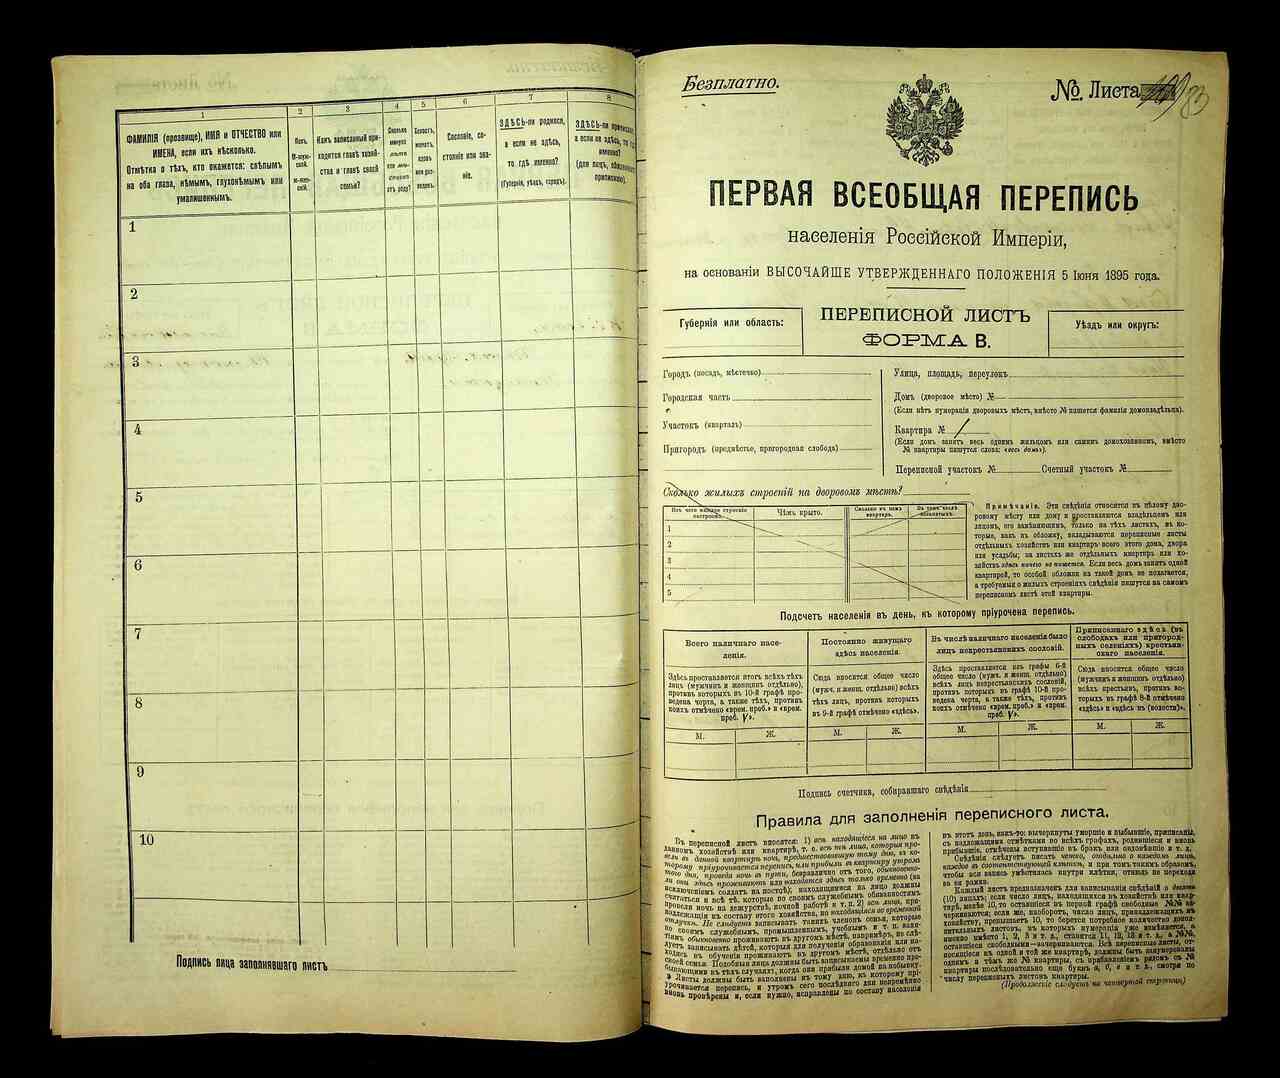 1
ФАМИЛІЯ (прозвище), ИМЯ и ОТЧЕСТВО или
ИМЕНА, если ихъ нѣсколько.
Отмѣтка о тѣхъ, кто окажется: слѣпымъ
на оба глаза, нѣмымъ, глухонѣмымъ или
умалишеннымъ.
2
Полъ.
М-муж-
ской.
ж-жен-
скій.
3
Какъ записанный при-
ходится главѣ хозяй-
ства и главѣ своей
семьи?
4
Сколько
минуло
лѣтъ
или мѣся-
цевъ
отъ роду?
5
Холостъ,
женатъ,
вдовъ
или раз-
веденъ.
6
Сословіе, со-
стояніе или зва-
ніе.
7
ЗДѢСЬ-ли родился,
а если не здѣсь,
то гдѣ именно?
(Губернія, уѣздъ, городъ).
8
ЗДѢСЬ-ли приписанъ,
а если не здѣсь, то гдѣ
именно?
(для лицъ, обязанныхъ
припиской).
1
2
3
4
5
6
7
8
9
10
Подпись лица заполнявшаго листъ
Безплатно.
№ Листа 83
ПЕРВАЯ ВСЕОБЩАЯ ПЕРЕПИСЬ
населенія Россійской Имперіи,
на основаніи ВЫСОЧАЙШЕ УТВЕРЖДЕННАГО ПОЛОЖЕНІЯ 5 Іюня 1895 года.
Губернія или область:
ПЕРЕПИСНОЙ ЛИСТЪ
ФОРМА В.
Уѣздъ или округъ:
Городъ (посадъ, мѣстечко)
Городская часть
Участокъ (кварталъ)
Пригородъ (предмѣстье, пригородная слобода)
Улица, площадь, переулокъ
Домъ (дворовое мѣсто) №
(Если нѣтъ нумерація дворовыхъ мѣстъ, вмѣсто № пишется фамилія домовладѣльца).
Квартира № 1
(Если домъ занятъ весь однимъ жильцомъ или самимъ домохозяиномъ, вмѣсто
№ квартиры пишутся слова: «весь домъ»).
Переписной участокъ № Счетный участокъ №
Сколько жилыхъ строеній на дворовомъ мѣстѣ?
Изъ чего каждое строеніе
построено.
Чѣмъ крыто.
Сколько въ немъ
квартиръ.
Въ томъ числѣ
1
2
3
4
5
Примѣчаніе. Эти свѣдѣнія относятся къ цѣлому дво-
ровому мѣсту или дому и проставляются владѣльцемъ или
лицомъ, его замѣняющимъ, только на тѣхъ листахъ, въ ко-
торые, какъ въ обложку, вкладываются переписные листы
отдѣльныхъ хозяйствъ или квартиръ всего этого дома, двора
или усадьбы; на листахъ же отдѣльныхъ квартиръ или хо-
зяйствъ здѣсь ничего не пишется. Если весь домъ занятъ одной
квартирой, то особой обложки на такой домъ не полагается,
а требуемыя о жилыхъ строеніяхъ свѣдѣнія пишутся на самомъ
переписномъ листѣ этой квартиры.
Подсчетъ населенія въ день, къ которому пріурочена перепись.
Всего наличнаго насе-
ленія.
Постоянно живущаго
здѣсь населенія.
Въ числѣ наличнаго населенія было
лицъ некрестьянскихъ сословій.
Приписаннаго здѣсь (въ
слободахъ или пригород-
ныхъ селеніяхъ) крестьян-
скаго населенія.
Здѣсь проставляется итогъ всѣхъ тѣхъ
лицъ (мужчинъ и женщинъ отдѣльно),
противъ которыхъ въ 10-й графѣ про-
ведена черта, а также тѣхъ, противъ
коихъ отмѣчено «врем. проб.» и «врем.
преб. V».
Сюда вносится общее число
(мужч. и женщ. отдѣльно) всѣхъ
тѣхъ лицъ, противъ которыхъ
въ 9-й графѣ отмѣчено «здѣсь».
Здѣсь проставляется изъ графы 6-й
общее число (мужч. и женщ. отдѣльно)
всѣхъ лицъ некрестьянскихъ сословій,
противъ которыхъ въ графѣ 10-й про-
ведена черта, а также тѣхъ, противъ
коихъ отмѣчено «врем. преб.» и «врем.
преб. V».
Сюда вносится общее число
(мужчинъ и женщинъ отдѣльно)
всѣхъ крестьянъ, противъ ко-
торыхъ въ графѣ 8-й отмѣчено
«здѣсь» и «здѣсь въ (волости)».
М. Ж. М. Ж. М. Ж. М. Ж.
Подпись счетчика, собиравшаго свѣдѣнія
Правила для заполненія переписного листа.
Въ переписной листъ вносятся: 1) всѣ находящіеся на лицо въ
данномъ хозяйствѣ или квартирѣ, т. е. всѣ тѣ лица, которыя про-
вели въ данной квартирѣ ночь, предшествовавшую тому дню, къ ко-
торому пріурочивается перепись, или прибыли въ квартиру утромъ
того дня, проведя ночь въ пути, безразлично отъ того, обыкновенно-
ли они здѣсь проживаютъ или находятся здѣсь только временно (за
исключеніемъ солдатъ на постоѣ); находящимися на лицо должны
считаться и всѣ тѣ, которые по своимъ служебнымъ обязанностямъ
провели ночь на дежурствѣ, ночной работѣ и т. п. 2) всѣ лица, при-
надлежащія къ составу этого хозяйства, но находящіяся во временной
отлучкѣ. Не слѣдуетъ записывать такихъ членовъ семьи, которые
по своимъ служебнымъ, промышленнымъ, учебнымъ и т. п. заня-
тіямъ обыкновенно проживаютъ въ другомъ мѣстѣ, напримѣръ, не слѣ-
дуетъ записывать дѣтей, которыя для полученія образованія или на-
ходясь въ обученіи проживаютъ въ другомъ мѣстѣ, отдѣльно отъ
своей семьи. Подобныя лица должны быть записываемы временно пре-
бывающими въ тѣхъ случаяхъ, когда они прибыли домой на побывку.
Листы должны быть заполнены къ тому дню, къ которому прі-
урочивается перепись, и утромъ сего послѣдняго дня непремѣнно
вновь провѣрены и, если нужно, исправлены по составу населенія
въ этотъ день, какъ-то: вычеркнуты умершіе и выбывшіе, приписаны,
съ надлежащими отмѣтками по всѣмъ графамъ, родившіеся и вновь
прибывшіе, отмѣчены вступившіе въ бракъ или овдовѣвшіе и т. д.
Свѣдѣнія слѣдуетъ писать четко, отдѣльно о каждомъ лицѣ,
каждое въ соотвѣтствующей клѣткѣ, и при томъ такимъ образомъ,
чтобы вся запись умѣстилась внутри клѣтки, отнюдь не переходя
за ея рамки.
Каждый листъ предназначенъ для записыванія свѣдѣній о десяти
(10) лицахъ; если число лицъ, находящихся въ хозяйствѣ или квар-
тирѣ, менѣе 10, то оставшіеся въ первой графѣ свободные №№ за-
черкиваются; если же, наоборотъ, число лицъ, принадлежащихъ къ
хозяйству, превышаетъ 10, то берется потребное количество допол-
нительныхъ листовъ, въ которыхъ нумерація уже измѣняется, а
именно вмѣсто 1, 2, 3 и т. д., ставится 11, 12, 13 и т. д., а №№,
оставшіеся свободными—зачеркиваются. Всѣ переписные листы, от-
носящіеся къ одной и той же квартирѣ, должны быть занумерованы
однимъ и тѣмъ же № квартиры, съ прибавленіемъ рядомъ съ №
квартиры послѣдовательно еще буквъ а, б, в и т. д., смотря по
числу переписныхъ листовъ квартиры.
(Продолженіе слѣдуетъ на четвертой страницѣ)